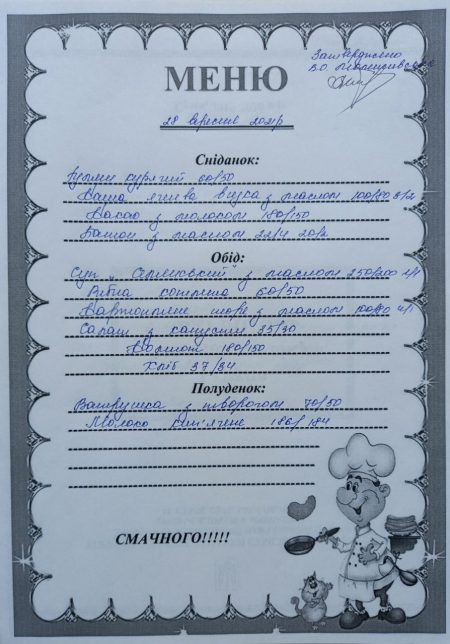 Затверджено
В.О.
МЕНЮ
28 вересня 2021р
Сніданок:
курячий 60/50
Каша ячнева з маслом 100/80
Какао з молоком 180/150
Батон з маслом 22/4 20/2
Обід:
Суп „Селянський" з маслом 250/200
Рибна котлета 60/50
Картопляне пюре з маслом 100/80 4/1
Салат з капусти 35/30
Компот 180/150
Хліб 37/34
Полуденок:
Ватрушка з творогом 70/50
Молоко кип'ячене 186/184
СМАЧНОГО!!!!!